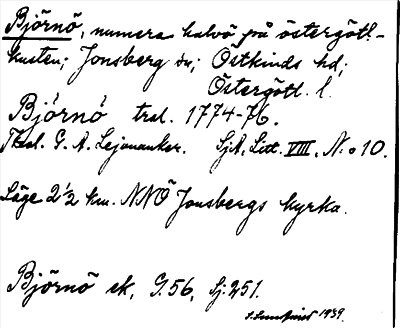 Björnö, numera halvö på östergötl.-
kusten; Jonsberg sn; Östkinds hd;
Östergötl. l.
Björnö trol. 1774-76.
Thol. G. A. Lejonanker. SjA, Litt. VIII, N:o 10.
Läge 2 1/2 km. NNÖ Jonsbergs kyrka.
Björnö ek, G.56, Sj:251.
1939.